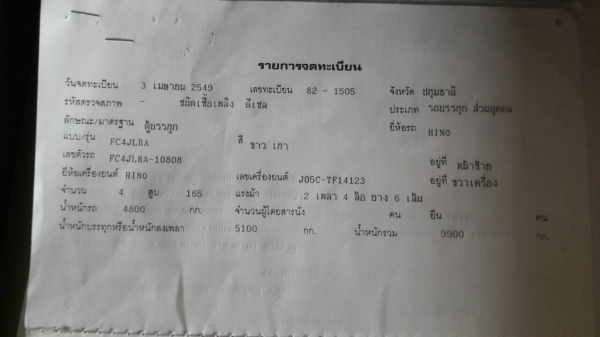 6
รายการจดทะเบียน
วันจดทะเบียน 3 เมษายน 2549 เลขทะเบียน 82 - 1505 จังหวัด ปทุมธานี
รหัสตรวจสภาพ - ชนิดเชื้อเพลิง ดีเซล ประเภท รถบรรทุก ส่วนบุคคล
ลักษณะ/มาตรฐาน ตู้บรรทุก ยี่ห้อรถ HINO
แบบ/รุ่น FC4JLRA สี ขาว เทา
เลขตัวรถ FC4JLRA-10808 อยู่ที่ หน้าซ้าย
ยี่ห้อเครื่องยนต์ HINO เลขเครื่องยนต์ J05C-TF14123 อยู่ที่ ขวาเครื่อง
จำนวน 4 สูบ 165 แรงม้า 2 เพลา 4 ล้อ ยาง 6 เส้น
น้ำหนักรถ 4800 กก. จำนวนผู้โดยสารนั่ง คน ยืน คน
น้ำหนักบรรทุกหรือน้ำหนักลงเพลา 5100 กก. น้ำหนักรวม 9900 กก.